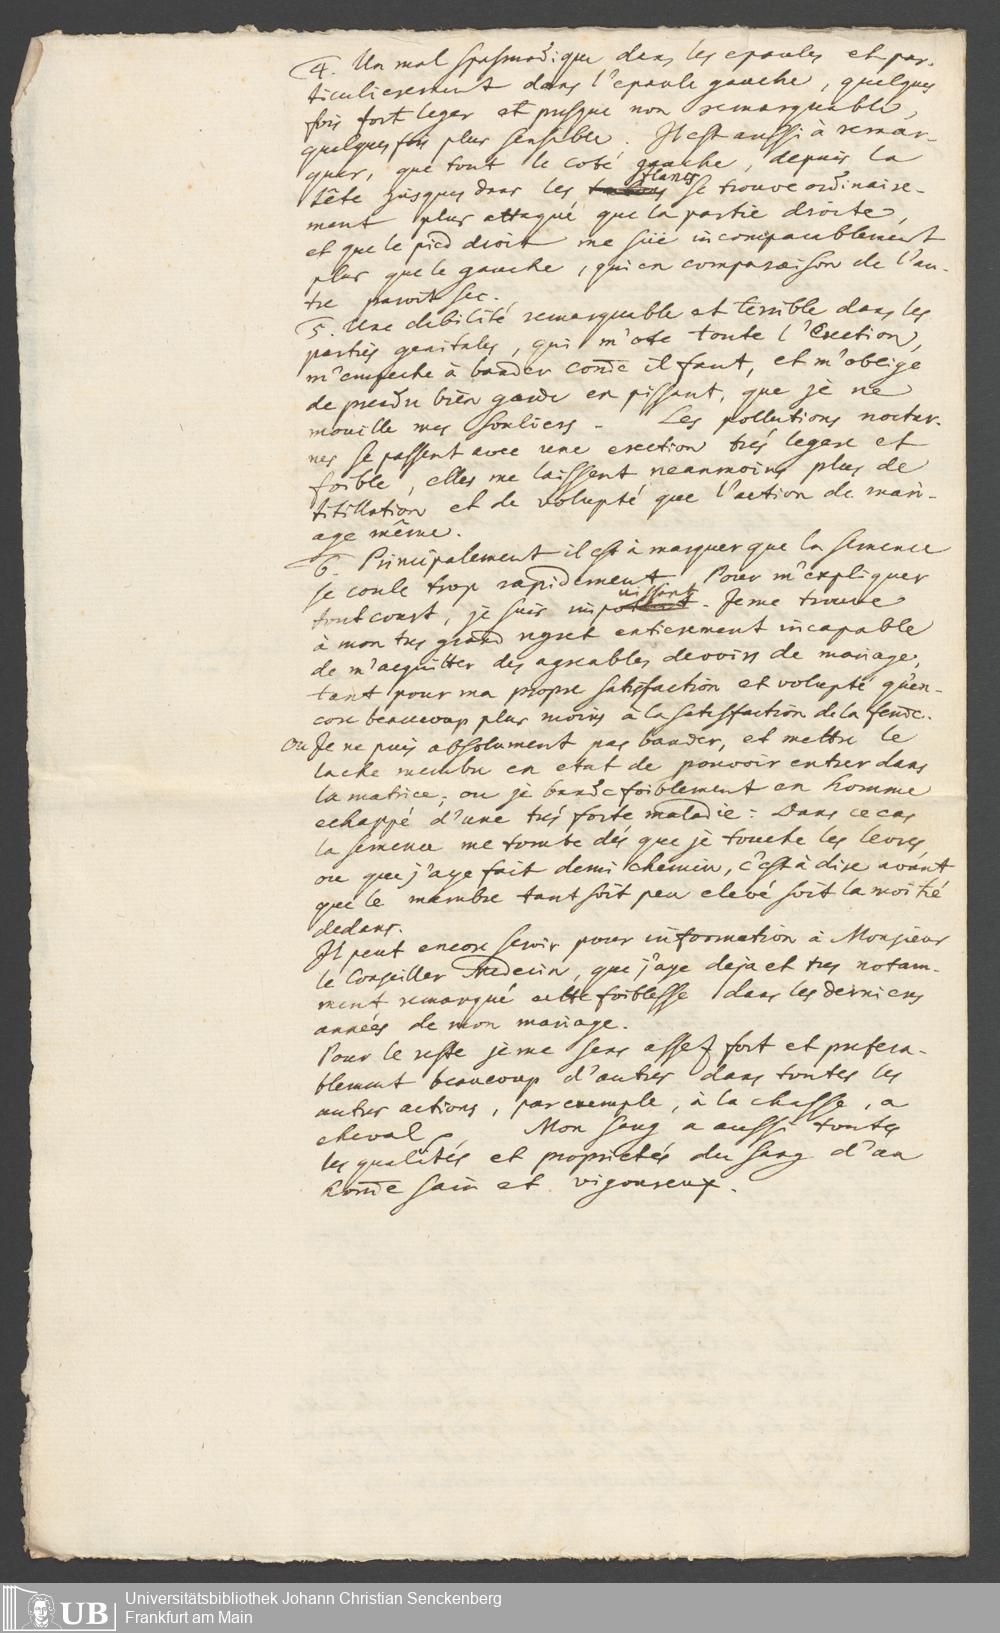 4. Un mal spasmodique dans les epaules et par-
ticulierement dans l'epaule gauche, quelques
fois fort leger et presque non remarquable,
quelques fois plus sensible. Il est aussi à remar-
quer, que tout le coté gauche, depuis la
tête jusques dans les flancs se trouve ordinaire-
ment plus attaqué que la partie droite,
et que le pied droit me süe incomparablement
plus que le gauche, qui en comparaison de l'au-
tre paroit sec.
5. Une debilité remarquable et terrible dans les
parties genitales, qui m'ote toute l'Erection,
m'empeche à bander come il faut, et m'obeige
de prendre bien garde en pissant, que je ne
mouille mes souliers. Les pollutions noctur-
nes se passent avec une erection trés legere et
foible, elles me laissent neanmoins plus de
titillation et de volupté que l'action de mari-
age même.
6. Principalement il est à marquer que la semence
se coule trop rapidement. Pour m'expliquer
tout court, je suis impuissant. Je me trouve
à mon tres grand regret entierement incapable
de m'aquitter des agreables devoirs de mariage,
tant pour ma propre satisfaction et volupté qu'en-
core beaucoup plus moins à la satisfaction de la feme.
Ou Je ne puis absolument pas bander, et mettre le
lache membre en etat de pouvoir entrer dans
la matrice; ou je bande foiblement en homme
echappé d'une trés forte maladie: Dans ce cas
la semence me tombe dés que je touche les levres,
ou que j'aye fait demi chemin, c'est à dire avant
que le membre tant soit peu elevé soit la moitié
dedans.
Il peut encore servir pour information à Monsieur
le Conseiller Medecin, que j'aye deja et tres notam-
ment remarqué cette foiblesse dans les derniers
années de mon mariage.
Pour le reste je me sens assez fort et prefera-
blement beaucoup d'autres dans toutes les
autres actions, par exemple, à la chasse, a
cheval Mon sang a aussi toutes
les qualités et proprietés du sang d'un
home sain et vigoureux.
Universitätsbibliothek Johann Christian Senckenberg
UB Frankfurt am Main